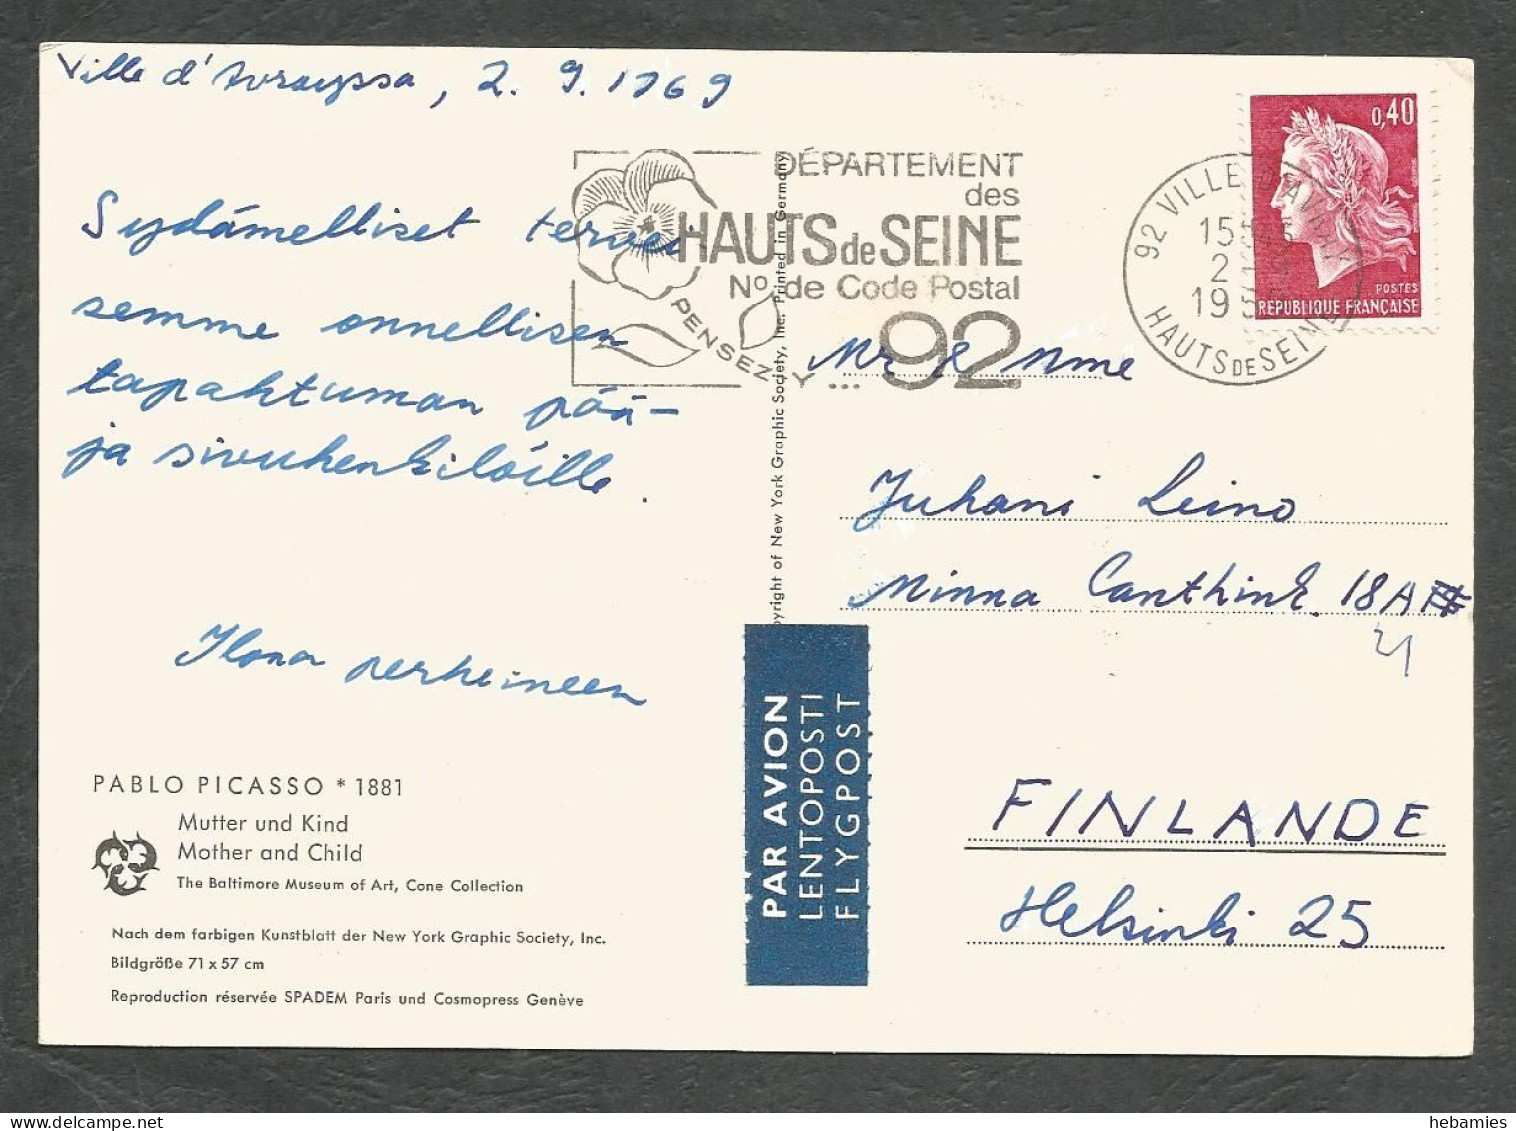 Ville d'Avrayssa, 2. 9. 1969
Sydämelliset tervei
semme onnellisen
tapahtuman pää-
ja sivuhenkilöille.
Ilona perheineen
PABLO PICASSO * 1881
Mutter und Kind
Mother and Child
The Baltimore Museum of Art, Cone Collection
Nach dem farbigen Kunstblatt der New York Graphic Society, Inc.
Bildgröße 71 x 57 cm
Reproduction réservée SPADEM Paris und Cosmopress Genève
pyright of New York Graphic Society, Inc. Printed in Germany
DÉPARTEMENT
des
HAUTS de SEINE
No de Code Postal
92
PENSEZ Y ...
92 VILLE D'AVRAY
15
2
19
HAUTS DE SEINE
0,40
POSTES
REPUBLIQUE FRANÇAISE
Mr & Mme
Juhani Leino
Minna Canthink. 18 A
21
FINLANDE
Helsinki 25
PAR AVION
LENTOPOSTI
FLYGPOST
hebamies